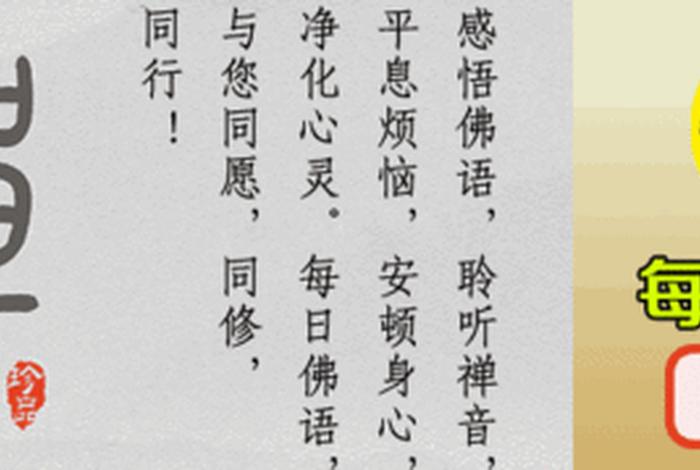 感悟佛语，聆听禅音，
平息烦恼，安顿身心，
净化心灵。每日佛语，
与您同愿，同修，
同行！
每
珍品